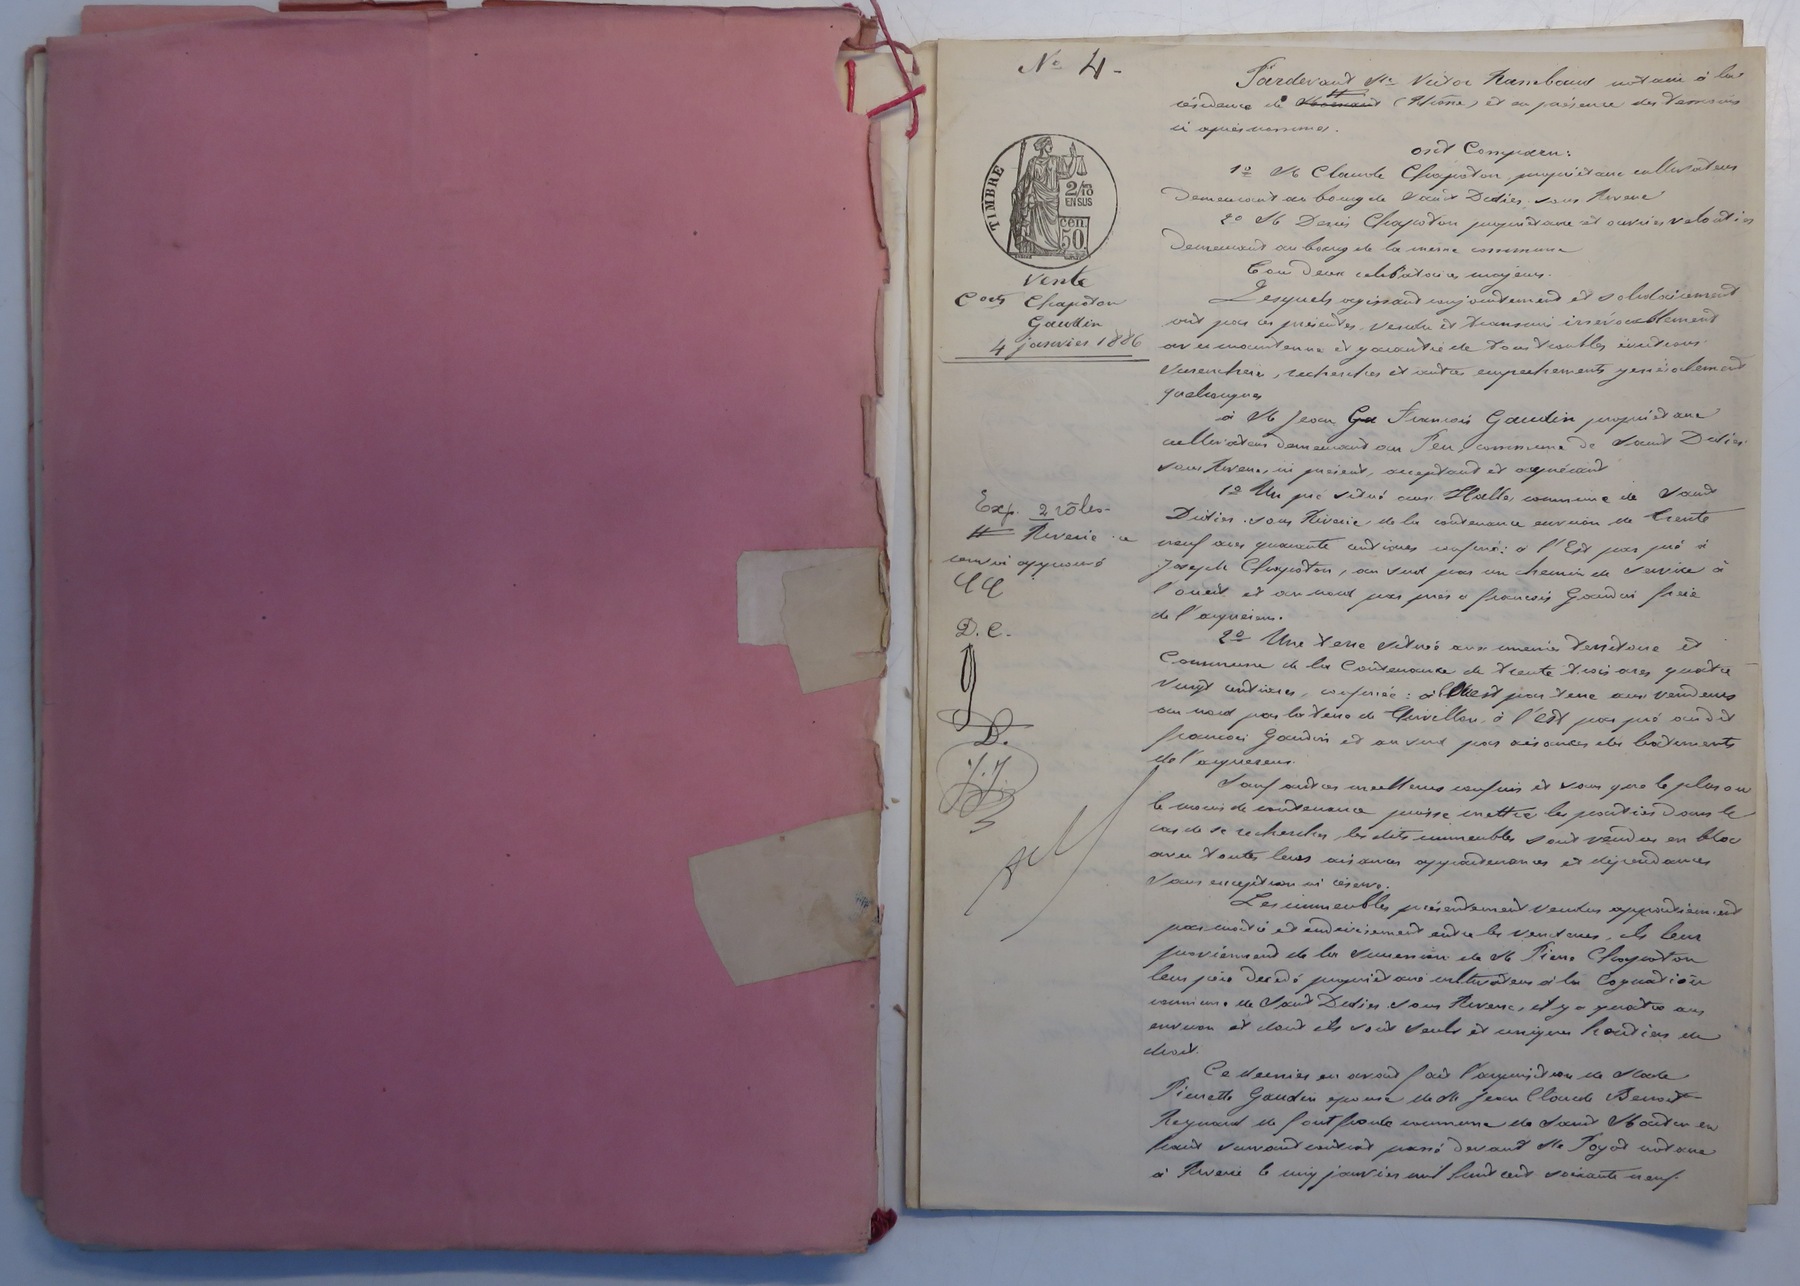 No 4.
TIMBRE
2/10
EN SUS
cen
50
Vente
Corts Chapoton
Gaudin
4 janvier 1886
Exp. 2 rôles
# Riverie
renvoi approuvé
D. C.
D.
J. J.
Pardevant Me Victor notaire à la
résidence de # (Rhône) et en présence des témoins
ci après nommés.
ont Comparu:
1o M Claude Chapoton propriétaire cultivateur
demeurant au bourg de Saint Didier sous Riverie
2o M Denis Chapoton propriétaire et ouvrier veloutier
demeurant au bourg de la même commune
Tous deux célibataires majeurs.
Lesquels agissant conjointement et solidairement
ont par ces présentes, vendu et transmis irrévocablement
avec maintenue et garantie de tous troubles évictions
surenchère, recherches et autres empêchements généralement
quelconques
à M Jean Ga François Gaudin propriétaire
cultivateur demeurant au Feu, commune de Saint Didier
sous Riverie, ici présent, acceptant et acquérant
1o Un pré situé aux Halles commune de Saint
Didier sous Riverie, de la contenance environ de trente
neuf ares quarante centiares confiné: à l'Est par pré à
Joseph Chapoton, au sud par un chemin de service à
l'ouest et au nord par prés à françois Gaudin frère
de l'acquéreur.
2o Une terre située aux mêmes territoire et
Commune de la Contenance de trente trois ares quatre
vingt centiares, confinée: à l'Ouest par terre aux vendeurs
au nord par la terre de à l'Est par pré audit
françois Gaudin et au sud par aisances des batiments
de l'acquéreur.
Sauf autres meilleurs confins et sans que le plus ou
le moins de contenance puisse mettre les parties dans le
cas de se rechercher, les dits immeubles sont vendus en bloc
avec toutes leurs aisances appartenances et dépendances
sans exception ni réserve.
Les immeubles présentement vendus appartiennent
par moitié et indivisément entre les vendeurs, ils leur
proviennent de la succession de M Pierre Chapoton
leur père décédé propriétaire cultivateur à la
commune de Saint Didier sous Riverie, il y a quatre ans
environ et dont ils sont seuls et uniques héritiers de
droit.
Ce dernier en avait fait l'acquisition de Made
Pierrette Gaudin épouse de M Jean Claude Benoit
Reynard de fontfroide commune de Saint Martin en
haut suivant contrat passé devant Me Poyat notaire
à Riverie le cinq janvier mil huit cent soixante neuf.